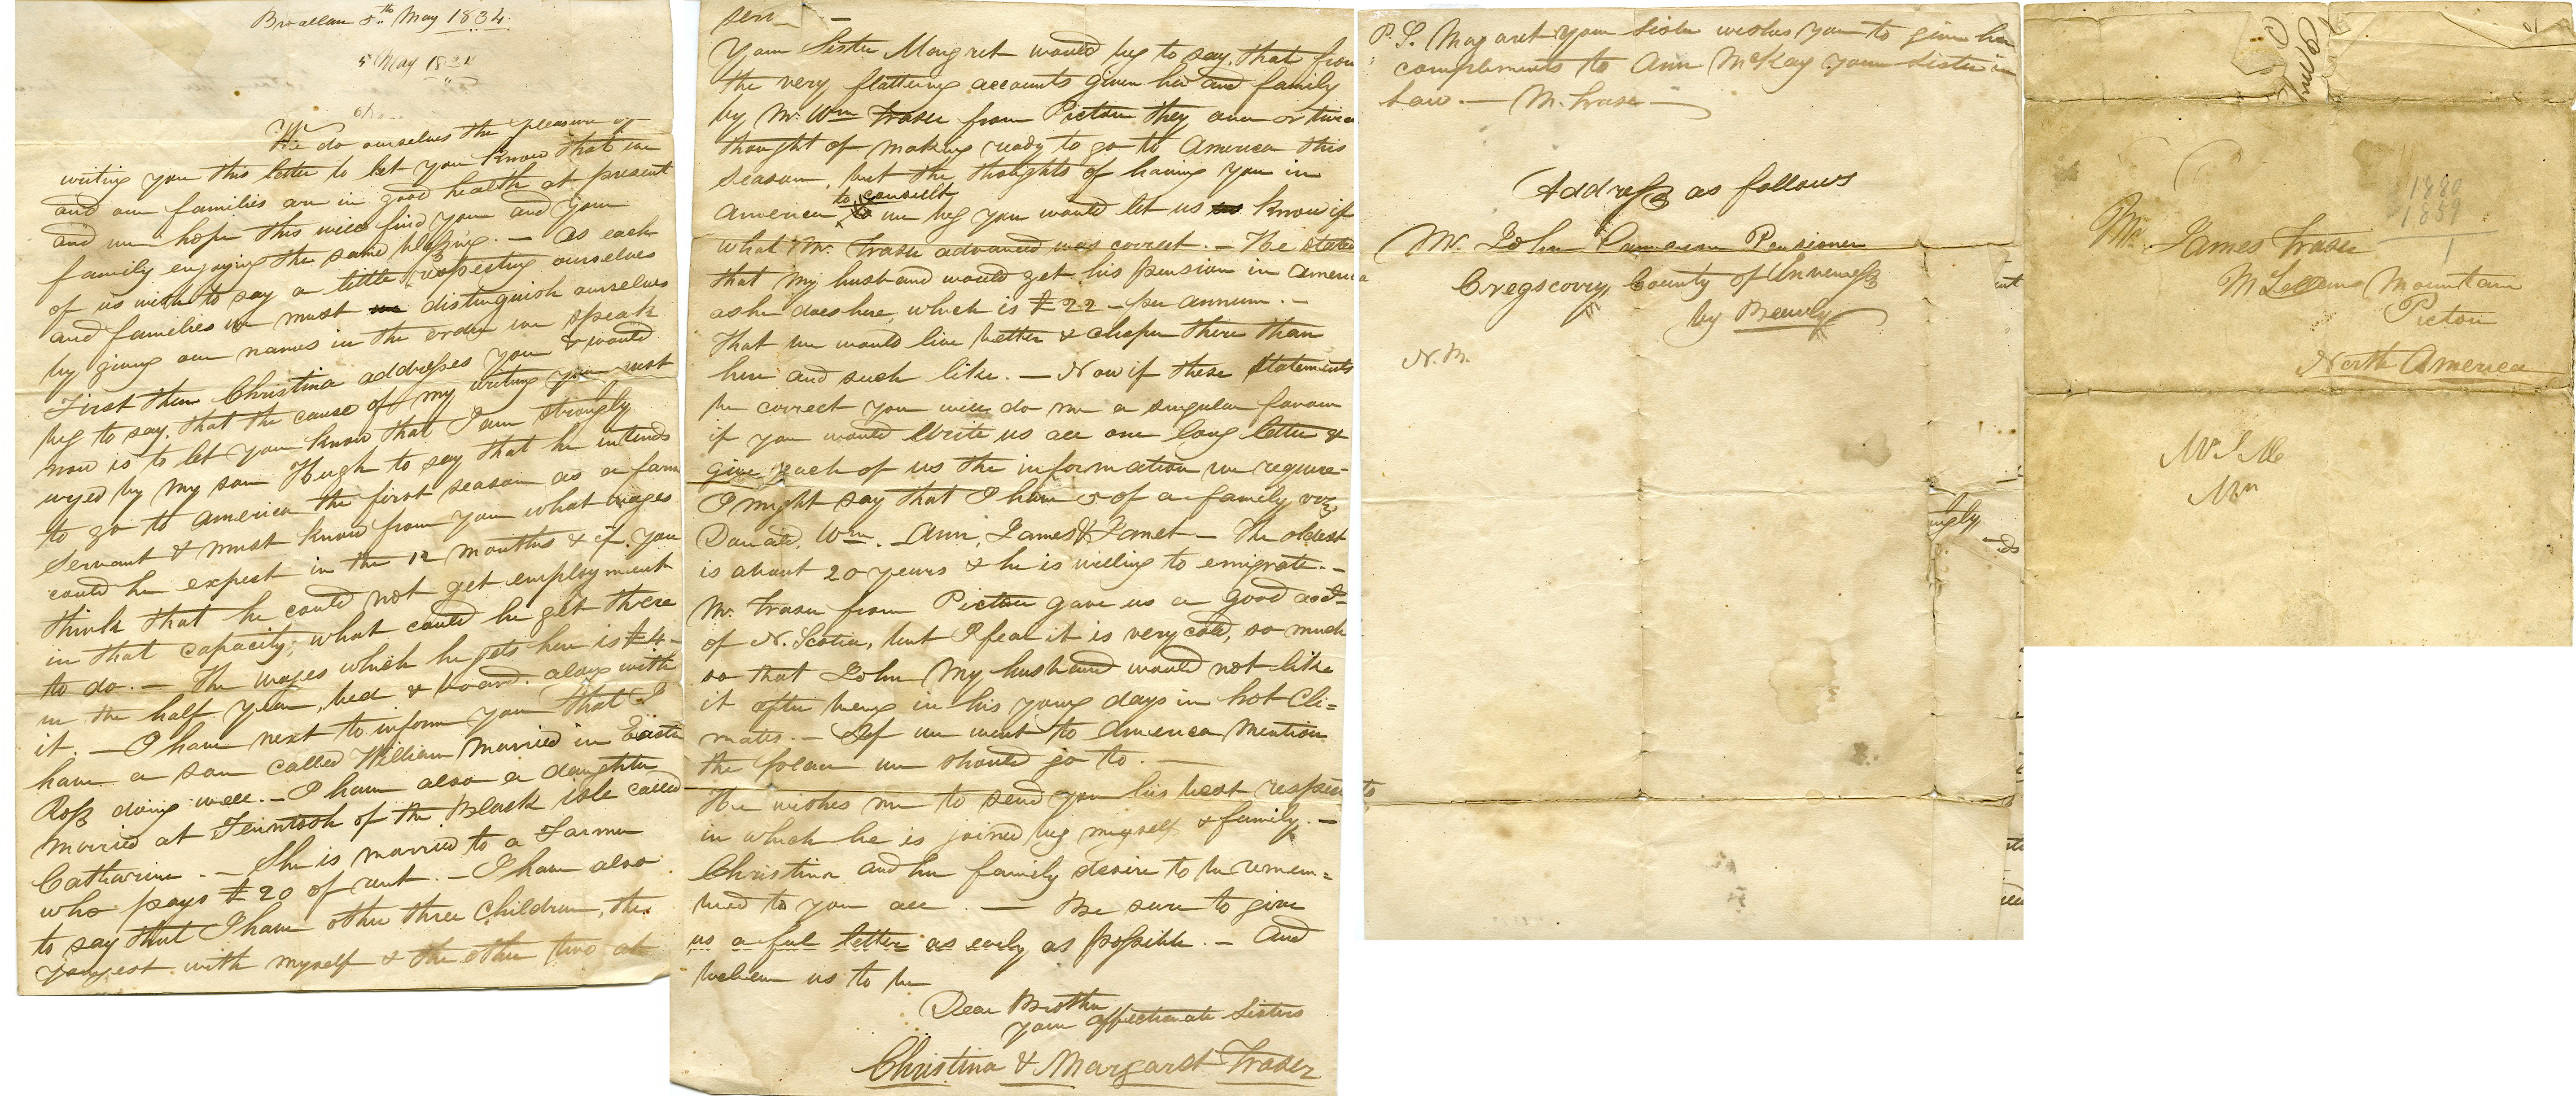 Broallan 5th May 1834.
5 May 1834
We do ourselves the pleasure of
writing you this letter to let you know that we
and our families are in good health at present
and we hope this will find you and your
family enjoying the same blessing. — As each
of us wish to say a little respecting ourselves
and families we must distinguish ourselves
by giving our names in the order we speak
First then Christina addresses you & would
beg to say, that the cause of my writing you just
now is to let you know that I am strongly
urged by my son Hugh to say that he intends
to go to America the first season as a farm
servant & must know from you what wages
could he expect in the 12 months & if you
think that he could not get employment
in that capacity, what could he get there
to do. — The wages which he gets here is £4-
in the half year, bed & board along with
it. — I have next to inform you that I
have a son called William married in Easter
Ross doing well. — I have also a daughter
married at Ferintosh of the Black isle called
Catharine. — She is married to a Farmer
who pays £20 of rent. — I have also
to say that I have other three children, the
youngest with myself & the other two at
serv —
Your Sister Margret would beg to say, that from
the very flattering accounts given her and family
by Mr. Wm Fraser from Pictou they once or twice
thought of making ready to go to America this
season, but the thoughts of having you in
America to consult we beg you would let us know if
what Mr. Fraser advanced was correct. — He stated
that my husband would get his pension in America
as he does here, which is £22 — per annum. —
That we would live better & cheaper there than
here and such like. — Now if these statements
be correct you will do me a singular favour
if you would write us all one long letter &
give each of us the information we require —
I might say that I have 5 of a family viz
Donald, Wm. — Ann, James & Janet — The oldest
is about 20 years & he is willing to emigrate. —
Mr. Fraser from Pictou gave us a good acct
of N. Scotia, but I fear it is very cold, so much
so that John my husband would not like
it after being in his young days in hot Cli=
mates. — If we went to America mention
the place we should go to. —
He wishes me to send you his best respects
in which he is joined by myself & family. —
Christina and her family desire to be remem=
bered to you all. — Be sure to give
us a full letter as early as possible. — And
believe us to be
Dear Brother
your affectionate Sisters
Christina & Margaret Fraser
P.S. Margaret your sister wishes you to give her
compliments to Ann McKay your sister in
law. — M. Fraser —
Address as follows
Mr. John Cameron Pensioner
Cregscorry, County of Inverness
by Beauly
N.B.
1880
1859
1
Mr. James Fraser
McLellans Mountain
Pictou
North America